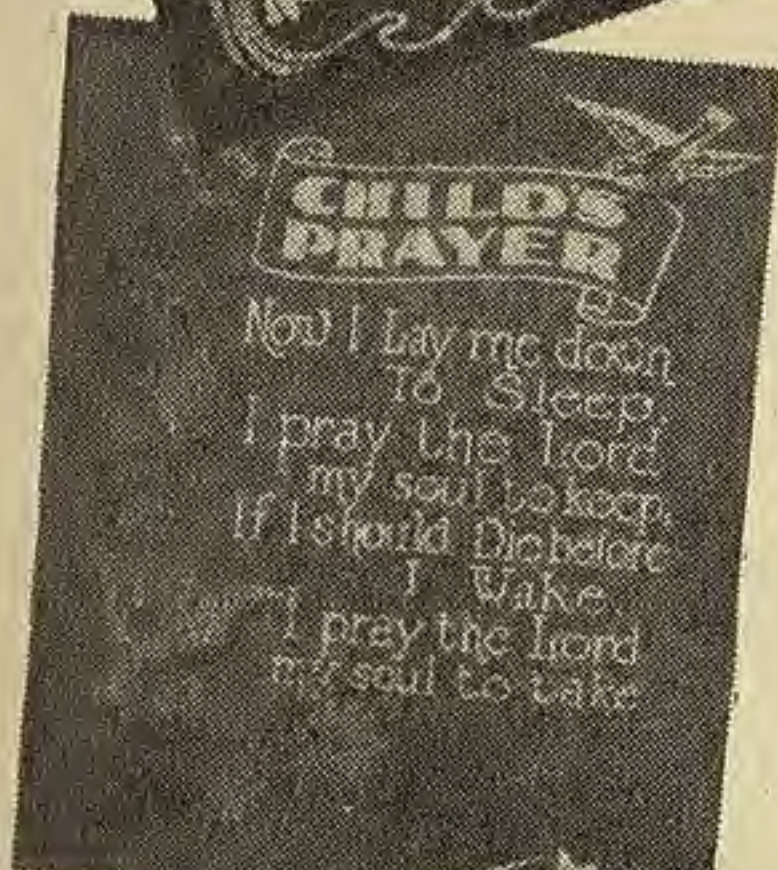 CHILD'S
PRAYER
Now I Lay me down
To Sleep.
I pray the Lord
my soul to keep,
If I should Die before
I Wake.
I pray the Lord
my soul to take